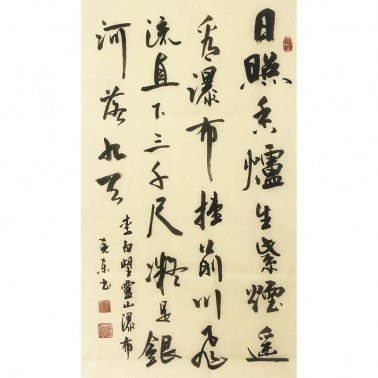 日照香爐生紫煙遥
看瀑布挂前川飛
流直下三千尺凝是銀
河落九天
李白望山瀑布
东书